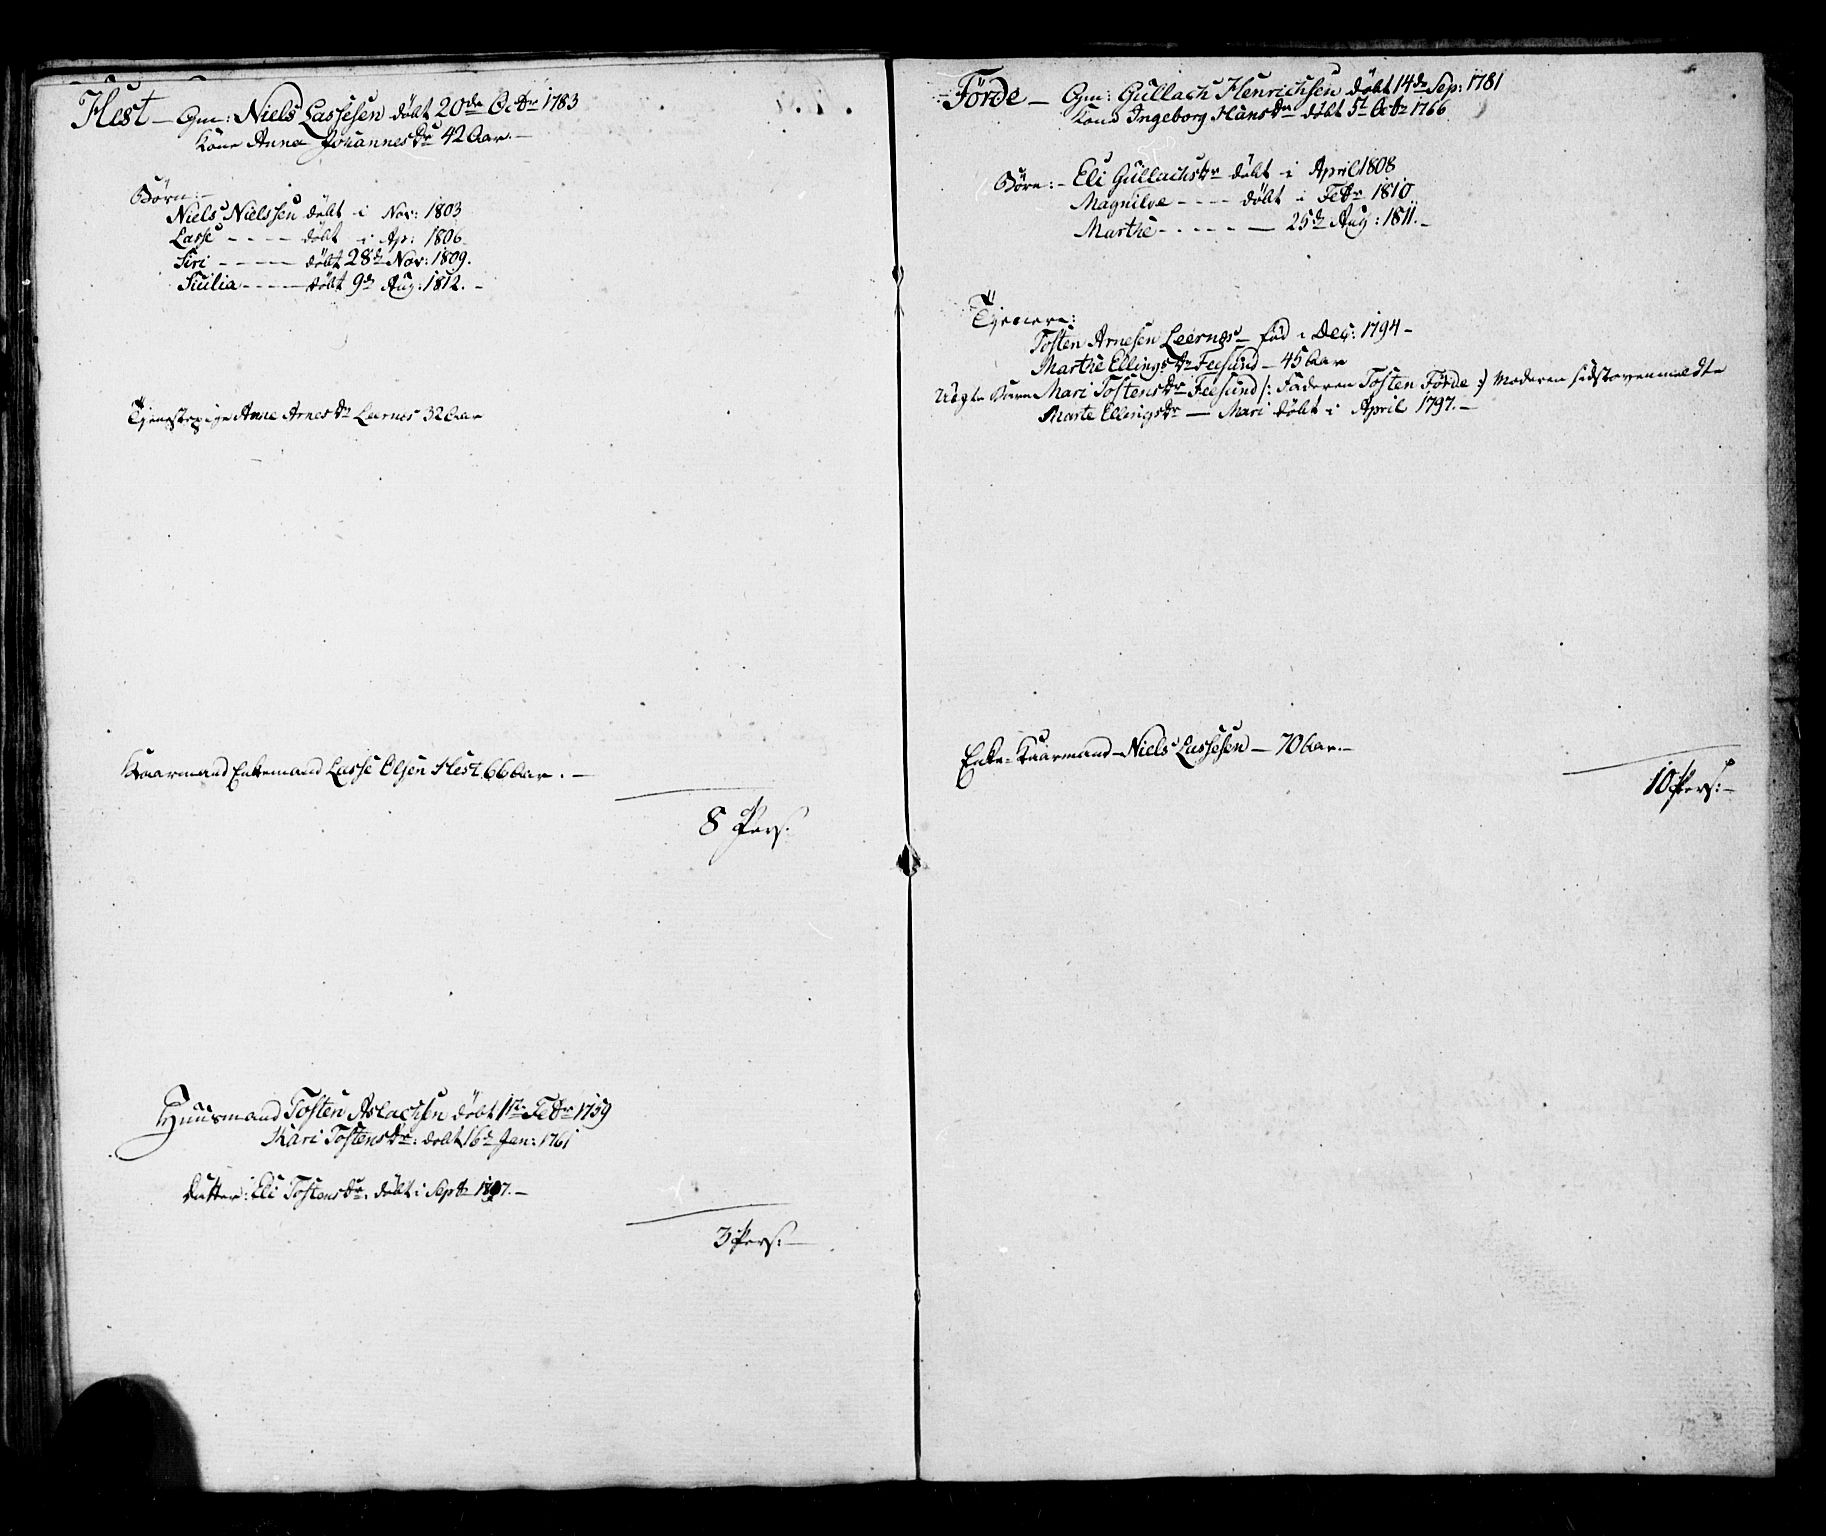 Hest – Gm: Niels Lassesen döbt 20de Octbr 1783
Kone Anna Johannesdr 42 Aar. –
Börn: –
Niels Nielssen döbt i Nov: 1803
Lasse - - - - döbt i Ap: 1806.
Siri - - - - döbt 28de Nov: 1809.
Sicilia - - - - döbt 9de Aug: 1812. –
Tjenstepige Anne Arnesdr Leernes 32 Aar
Kaarmand Enkemand Lasse Olsen Hest 66 Aar. –
8 Pers:
Huusmand Tosten Aslachsen döbt 1ste Febr 1759
Kari Tostensdr: döbt 16de Jan: 1761
Datter: Eli Tostensdr: döbt i Septbr 1807. –
3 Pers: –
Förde – Gm: Gullach Henrichsen döbt 14de Sep: 1781
Kone Ingeborg Hansdr döbt 5t Octbr 1766
Börn: – Eli Gullachsdr döbt i April 1808
Magnilde - - - - döbt i Febr 1810
Marthe - - - - - – 25de Aug: 1811. –
Tjenere:
Tosten Arnesen Leernes – föd i Dec: 1794 –
Marthe Ellingsdr Feesund – 45 Aar
Uægte Barn Mari Tostensdr Feesund /: Faderen Tosten Förde :/ Moderen sidstovenmeldte
Marte Ellingsdr – Mari döbt i April 1797. –
Enke-Kaarmand – Niels Lassesen – 70 Aar. –
10 Pers: –